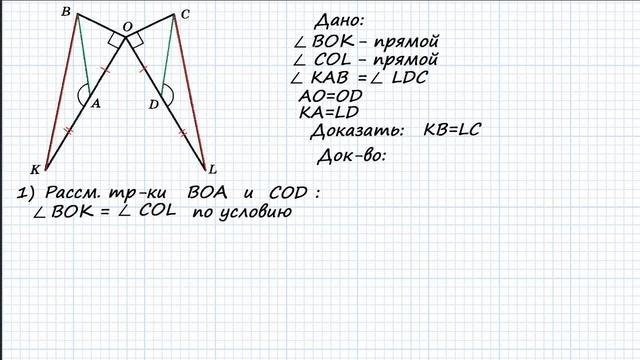 B
O
C
A
D
K
L
Дано:
∠ BOK - прямой
∠ COL - прямой
∠ KAB = ∠ LDC
AO=OD
KA=LD
Доказать: KB=LC
Док-во:
1) Рассм. тр-ки BOA и COD :
∠ BOK = ∠ COL по условию